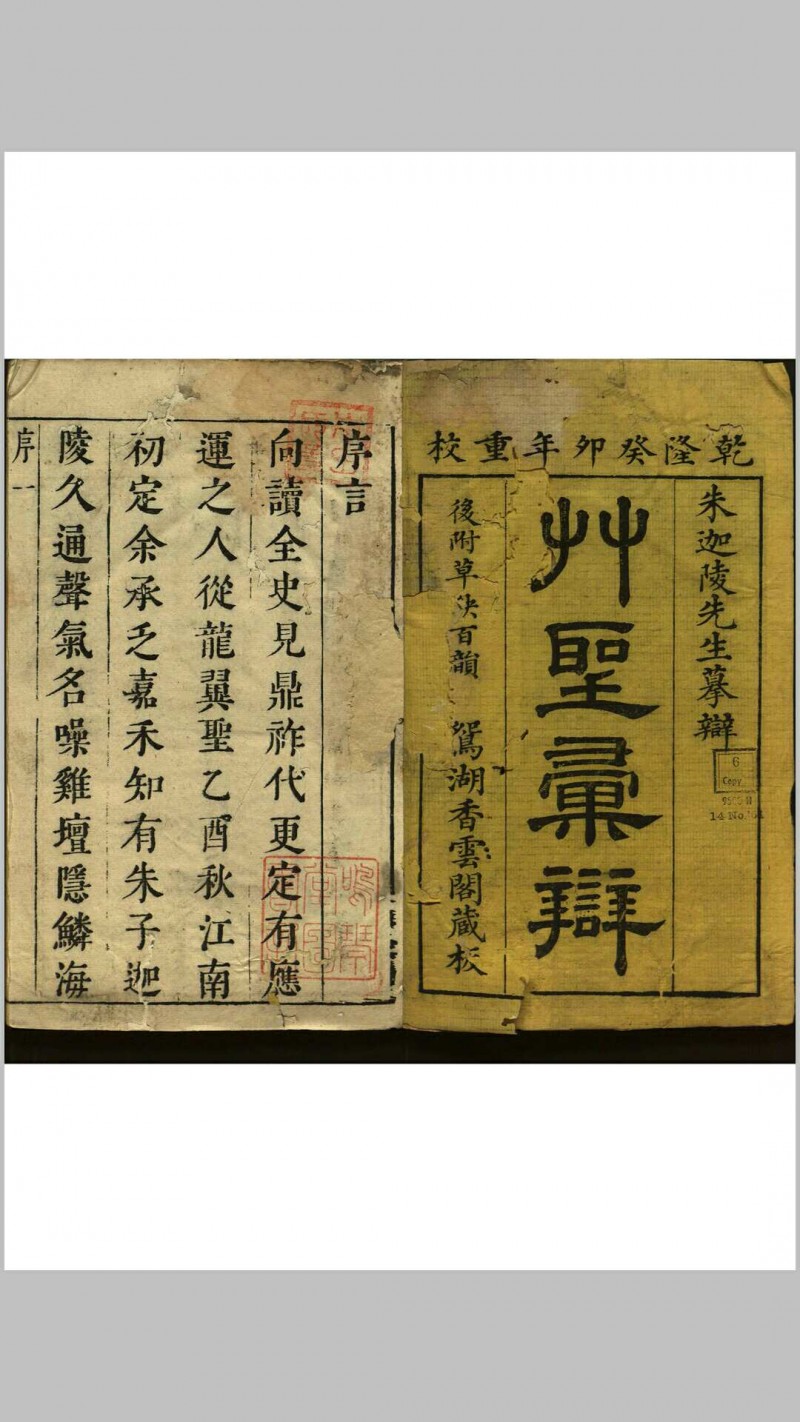 乾隆癸卯年重校
朱迦陵先生摹辯
艸聖彙辯
後附草決百韻　鴛湖香雲閣藏板
6
Copy
序言
向讀全史見鼎祚代更定有應
運之人從龍翼聖乙酉秋江南
初定余承乏嘉禾知有朱子迦
陵久通聲氣名噪雞壇隱鱗海
序一